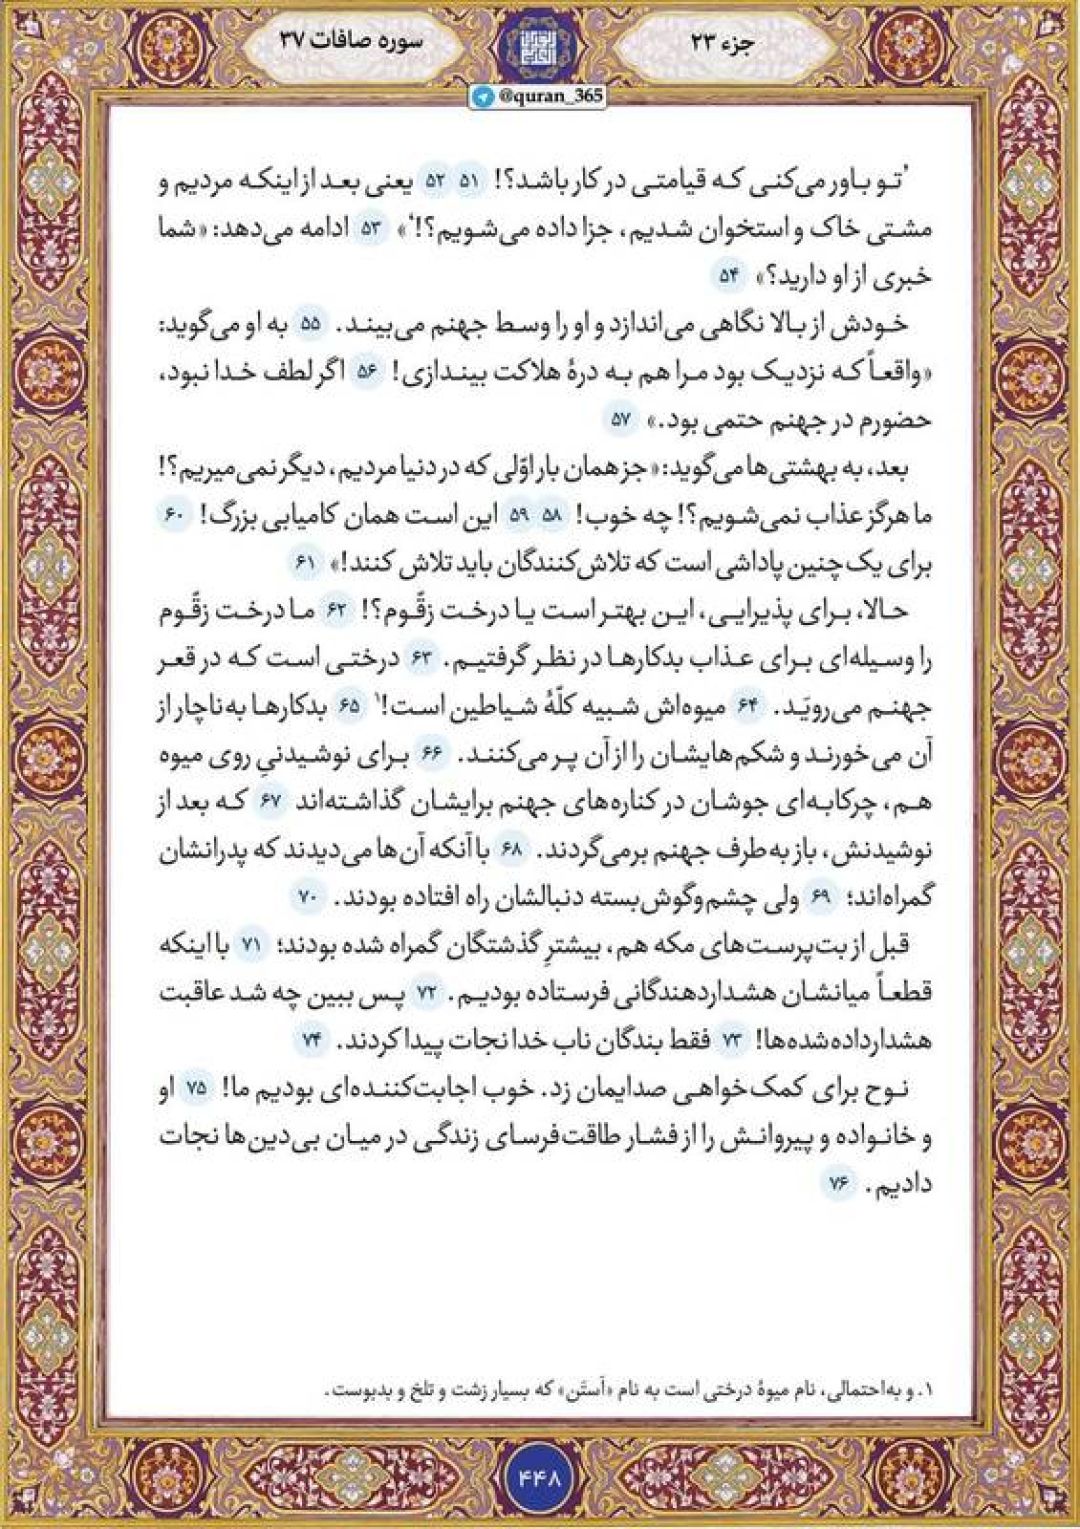 جزء ۲۳
سوره صافات ۳۷
@quran_365
'تو باور می‌کنی که قیامتی در کار باشد؟! ۵۱ ۵۲ یعنی بعد از اینکه مردیم و
مشتی خاک و استخوان شدیم، جزا داده می‌شویم؟!'» ۵۳ ادامه می‌دهد: «شما
خبری از او دارید؟» ۵۴
خودش از بالا نگاهی می‌اندازد و او را وسط جهنم می‌بیند. ۵۵ به او می‌گوید:
«واقعاً که نزدیک بود مرا هم به درهٔ هلاکت بیندازی! ۵۶ اگر لطف خدا نبود،
حضورم در جهنم حتمی بود.» ۵۷
بعد، به بهشتی‌ها می‌گوید: «جز همان بار اوّلی که در دنیا مردیم، دیگر نمی‌میریم؟!
ما هرگز عذاب نمی‌شویم؟! چه خوب! ۵۸ ۵۹ این است همان کامیابی بزرگ! ۶۰
برای یک چنین پاداشی است که تلاش‌کنندگان باید تلاش کنند!» ۶۱
حالا، برای پذیرایی، این بهتر است یا درخت زقّوم؟! ۶۲ ما درخت زقّوم
را وسیله‌ای برای عذاب بدکارها در نظر گرفتیم. ۶۳ درختی است که در قعر
جهنم می‌رویَد. ۶۴ میوه‌اش شبیه کلّهٔ شیاطین است!۱ ۶۵ بدکارها به‌ناچار از
آن می‌خورند و شکم‌هایشان را از آن پر می‌کنند. ۶۶ برای نوشیدنیِ روی میوه
هم، چرکابه‌ای جوشان در کناره‌های جهنم برایشان گذاشته‌اند ۶۷ که بعد از
نوشیدنش، باز به‌طرف جهنم برمی‌گردند. ۶۸ با آنکه آن‌ها می‌دیدند که پدرانشان
گمراه‌اند؛ ۶۹ ولی چشم‌وگوش‌بسته دنبالشان راه افتاده بودند. ۷۰
قبل از بت‌پرست‌های مکه هم، بیشترِ گذشتگان گمراه شده بودند؛ ۷۱ با اینکه
قطعاً میانشان هشداردهندگانی فرستاده بودیم. ۷۲ پس ببین چه شد عاقبت
هشدارداده‌شده‌ها! ۷۳ فقط بندگان ناب خدا نجات پیدا کردند. ۷۴
نوح برای کمک‌خواهی صدایمان زد. خوب اجابت‌کننده‌ای بودیم ما! ۷۵ او
و خانواده و پیروانش را از فشار طاقت‌فرسای زندگی در میان بی‌دین‌ها نجات
دادیم. ۷۶
۱. و به‌احتمالی، نام میوهٔ درختی است به نام «اَستَن» که بسیار زشت و تلخ و بدبوست.
۴۴۸